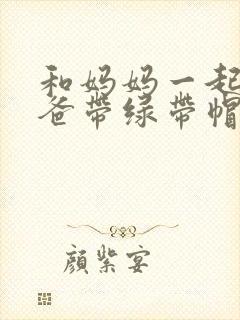 和妈妈一起
爸带绿带帽
颜紫宴